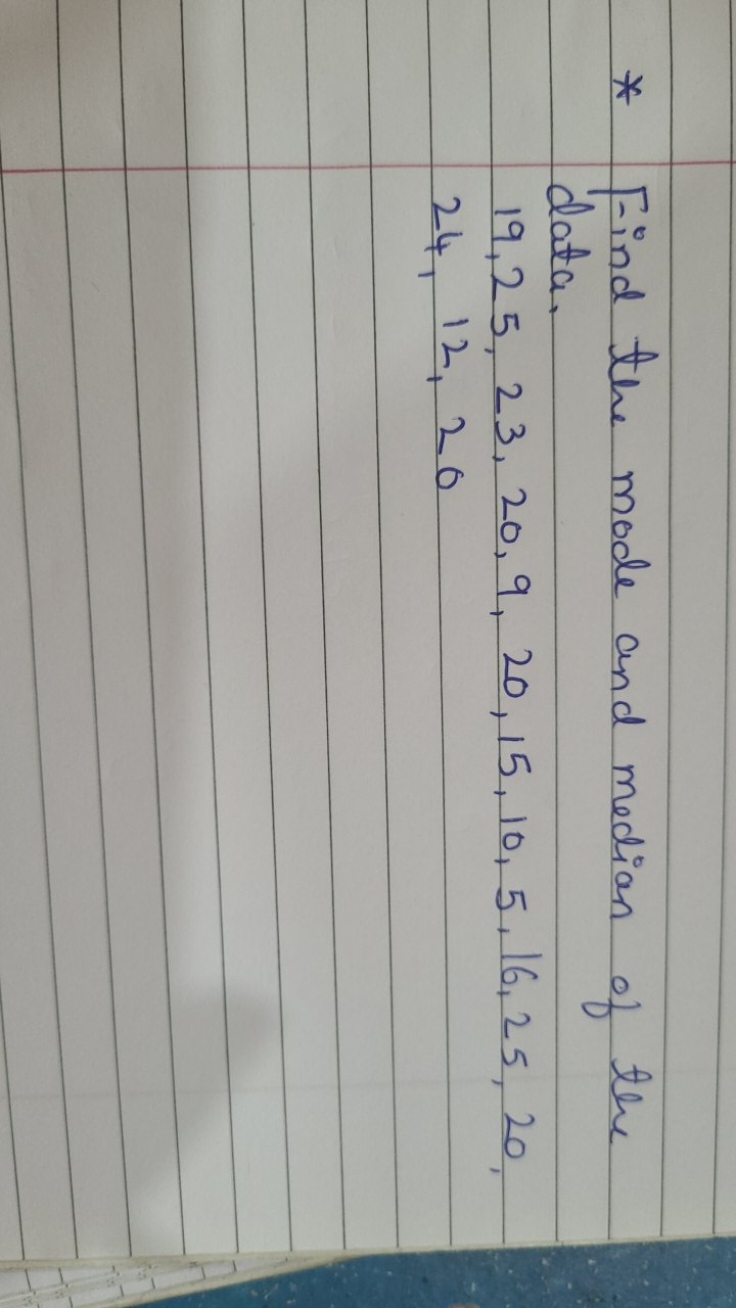 * Find the mode and median of the
data.
19, 25, 23, 20, 9, 20, 15, 10, 5, 16, 25, 20,
24, 12, 20